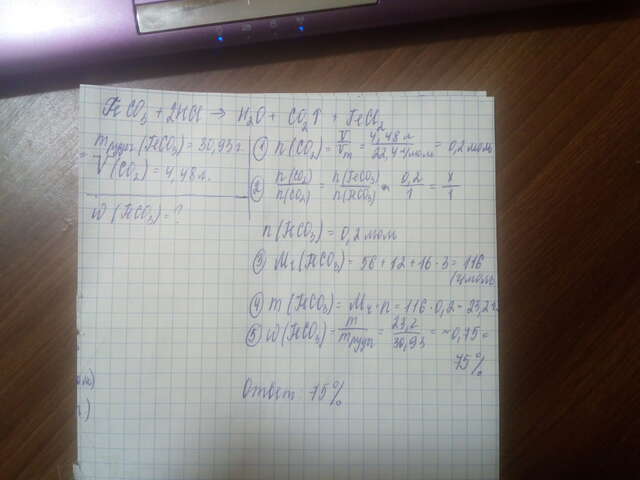 FeCO₃ + 2HCl → H₂O + CO₂↑ + FeCl₂
m руды (FeCO₃) = 30,93 г.
V (CO₂) = 4,48 л.
ω (FeCO₃) = ?
① n(CO₂) = V/Vm = 4,48 л/22,4 л/моль = 0,2 моль
② n(CO₂)/n(CO₂) = n(FeCO₃)/n(FeCO₃) 0,2/1 = x/1
n(FeCO₃) = 0,2 моль
③ Mr(FeCO₃) = 56 + 12 + 16 · 3 = 116
г/моль
④ m(FeCO₃) = Mr · n = 116 · 0,2 = 23,2 г.
⑤ ω(FeCO₃) = m/m руды = 23,2/30,93 = ~0,75 =
75%
Ответ: 75%